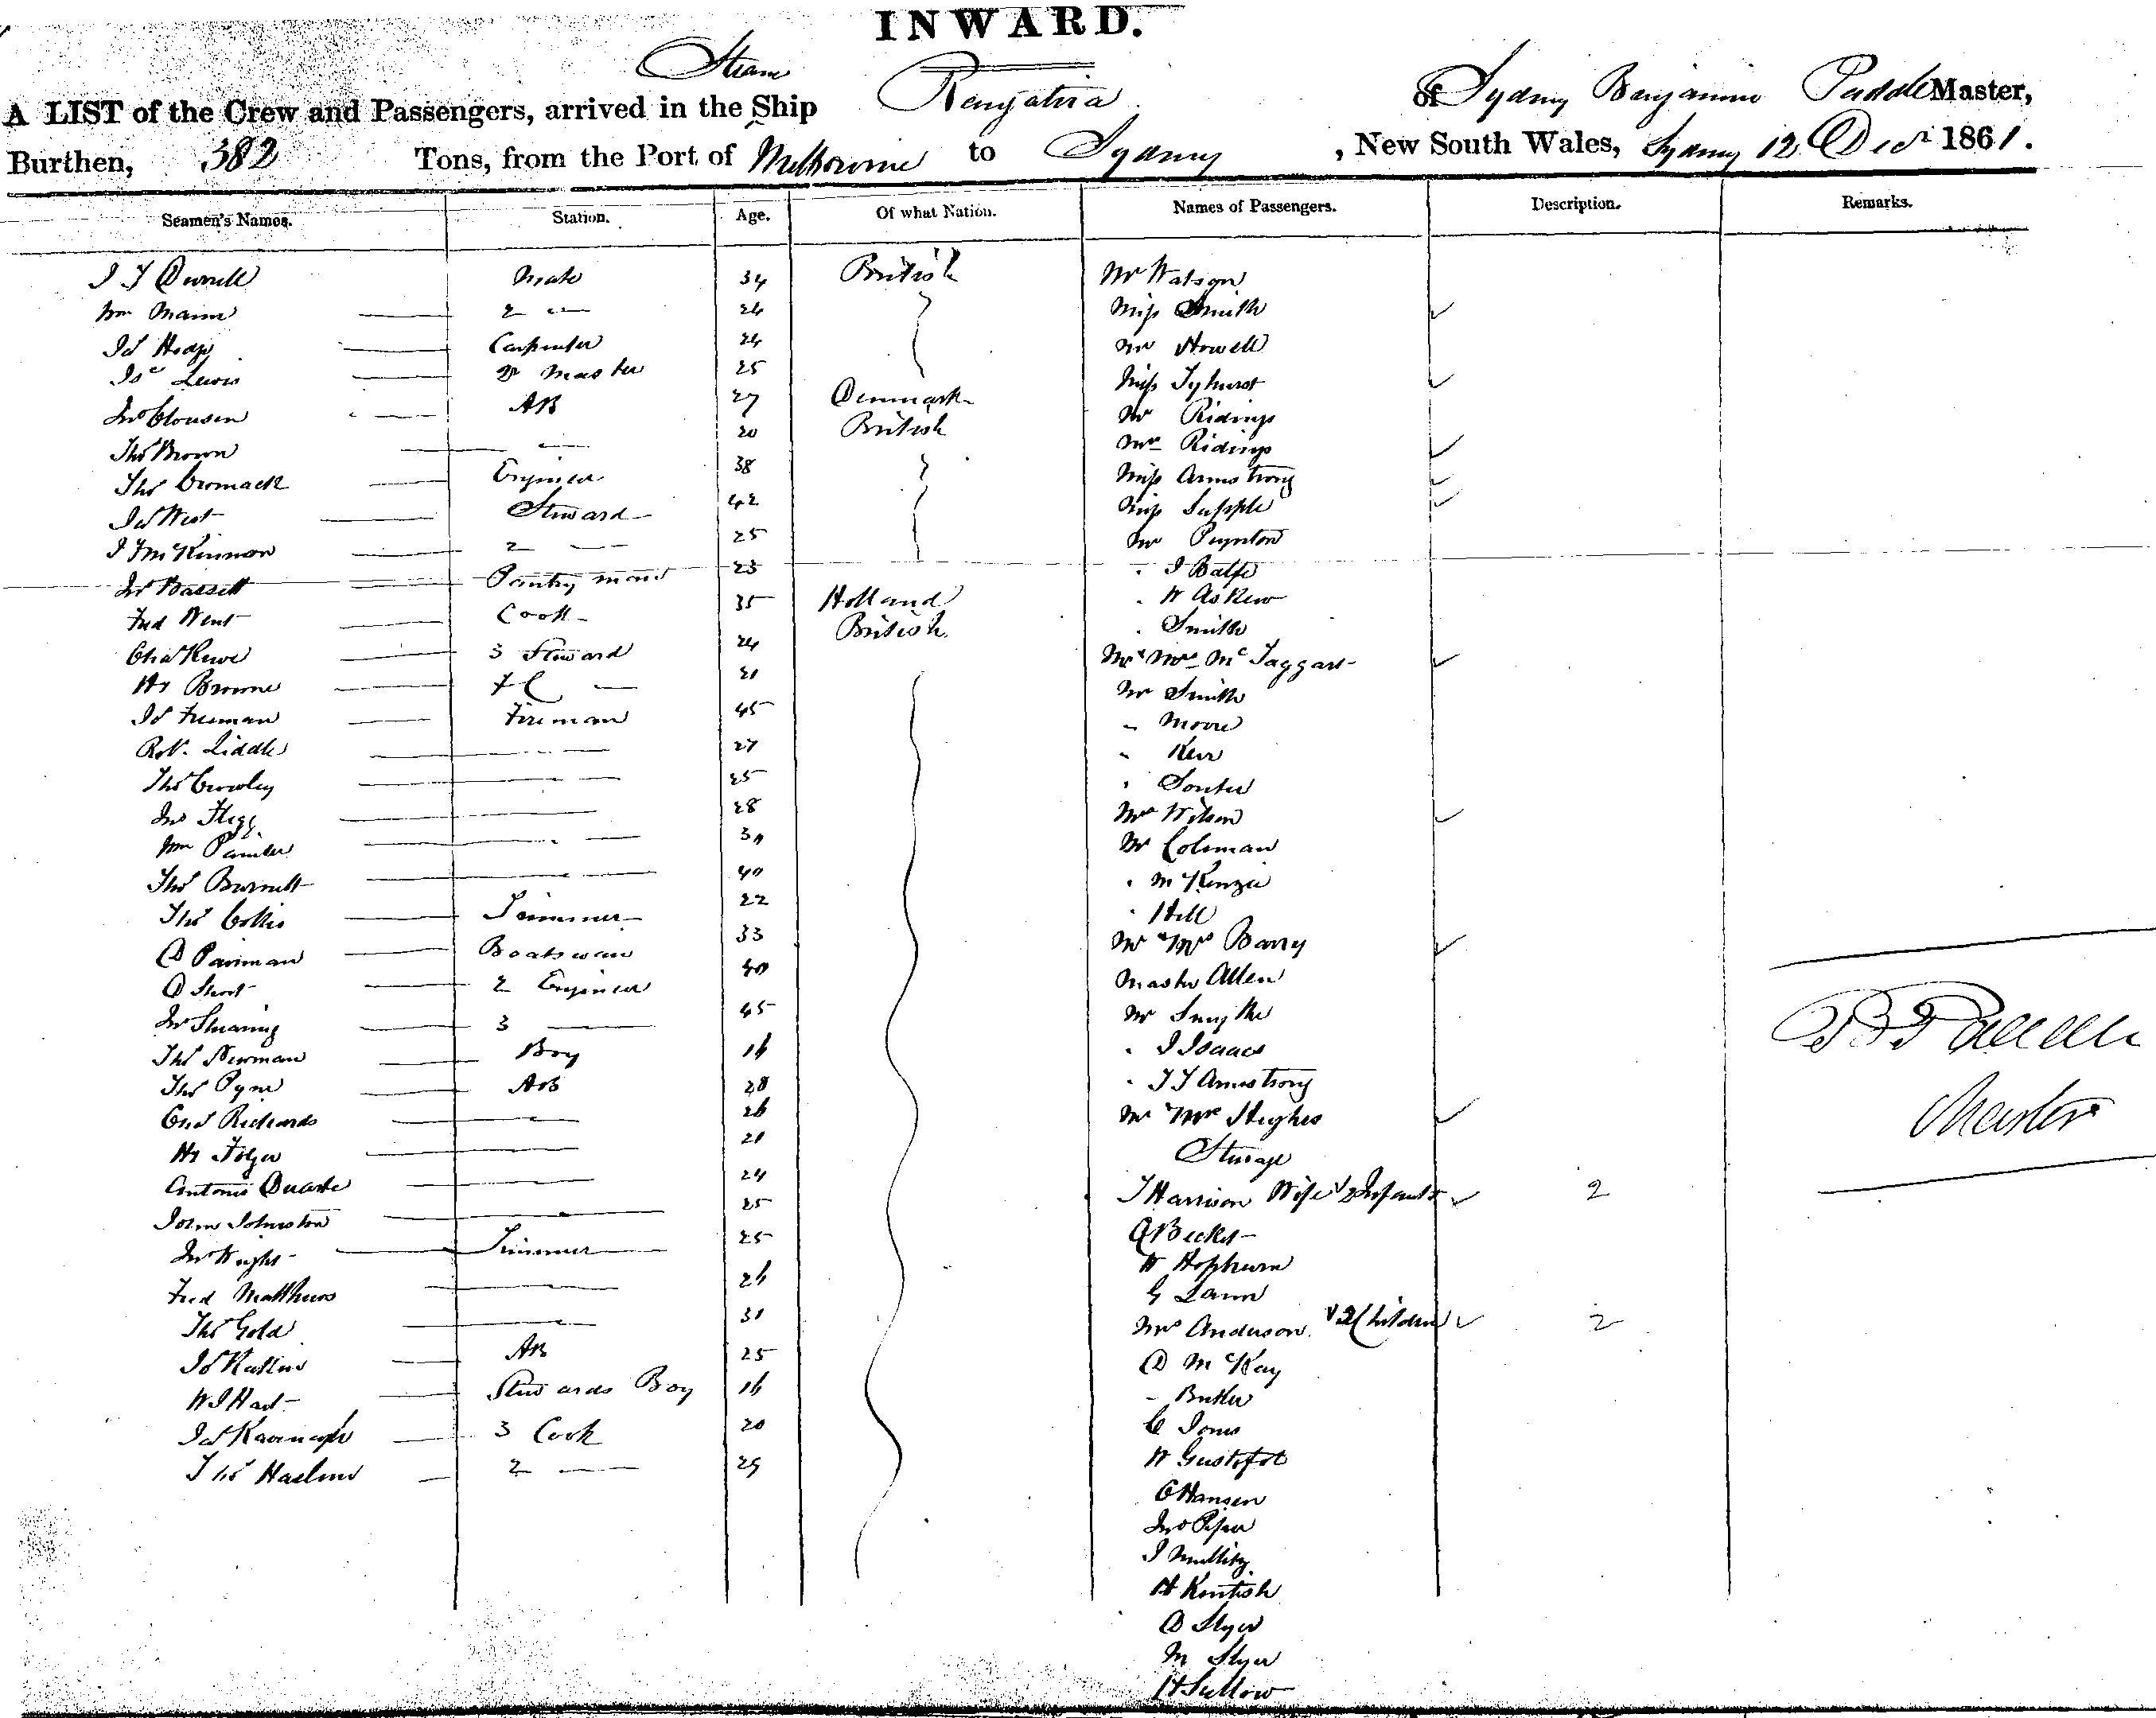 INWARD.
Steam
A LIST of the Crew and Passengers, arrived in the Ship Rangatira of Sydney Benjamin Master,
Burthen, 382 Tons, from the Port of Melbourne to Sydney, New South Wales, Sydney 12 Decr 1861.
Seamen's Names. Station. Age. Of what Nation. Names of Passengers. Description. Remarks.
Mate 34 British Mr Watson
Wm Mann 2 24 Miss Smith
Carpenter 24 Mr Howell
Lewis Master 25 Miss Tyhurst
Jno Clousen AB 27 Denmark Mr Ridings
Thos Brown 20 British Mrs Ridings
Thos Cromack Engineer 38 Miss Armstrong
Jas West Steward 42 Miss Supple
McKinnon 2 25 Mr Poynton
Jno Bassett Pantry man 23 J Balfe
Fred Went Cook 35 Holland W Askew
Chas 3 Steward 24 British Smith
Hy Browne 21 Mr & Mrs McTaggart
Jas Freeman Fireman 45 Mr Smith
Robt. Liddle 27 Moore
Thos Crowley 25 Kerr
Jno 28 Souter
Wm Painter Mrs Wilson
Thos Burnett 40 Mr Coleman
Thos Collis Trimmer 22 McKenzie
D Pariman Boatswan 33 Hill
D Short 2 Engineer 40 Mr & Mrs Barry
Jno Shearing 3 45 Master Allen
Thos Newman Boy 16 Mr Smythe
Thos Pyne AB 28 J Isaacs
Chas Richards 26 Armstrong
Hy 21 Mr & Mrs Hughes
Antonio Duarte 24 Steerage
John Johnston 25 J Harrison Wife & 2 Infants 2
Jno Wright Trimmer 25 Becket
Fred Matthews 26 W Hepburn
Thos Gold 31 G Lann
AB 25 Mrs Anderson & 2 Children 2
W J Hart Stewards Boy 16 D McKay
Jas Kavenagh 3 Cook 20 Butler
Thos 2 29 C Jones
W
C Hansen
Jno Piper
J
H Kentish
D Styer
M Styer
H
Master